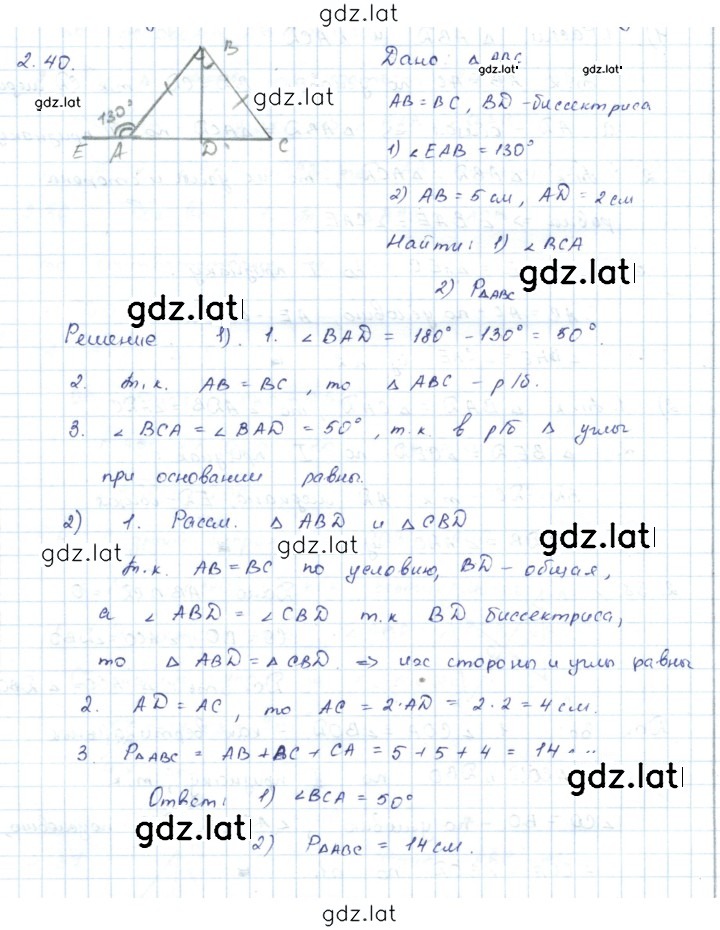 gdz.lat
2.40.
130°
B
E A D C
gdz.lat
gdz.lat
Дано: Δ ABC
gdz.lat gdz.lat
AB = BC, BD - биссектриса
1) ∠EAB = 130°
2) AB = 5 см, AD = 2 см
Найти: 1) ∠BCA
gdz.lat
2) PΔABC
gdz.lat
Решение 1). 1. ∠BAD = 180° - 130° = 50°.
2. т.к. AB = BC, то Δ ABC - р/б.
3. ∠BCA = ∠BAD = 50°, т.к. в р/б Δ углы
при основании равны.
2) 1. Рассм. Δ ABD и Δ CBD
gdz.lat gdz.lat gdz.lat
т.к. AB = BC по условию, BD - общая,
а ∠ABD = ∠CBD т.к BD биссектриса,
то Δ ABD = Δ CBD. => их стороны и углы равны
2. AD = AC, то AC = 2·AD = 2·2 = 4 см.
3. PΔABC = AB + BC + CA = 5 + 5 + 4 = 14
gdz.lat
Ответ: 1) ∠BCA = 50°
gdz.lat
2) PΔABC = 14 см.
gdz.lat